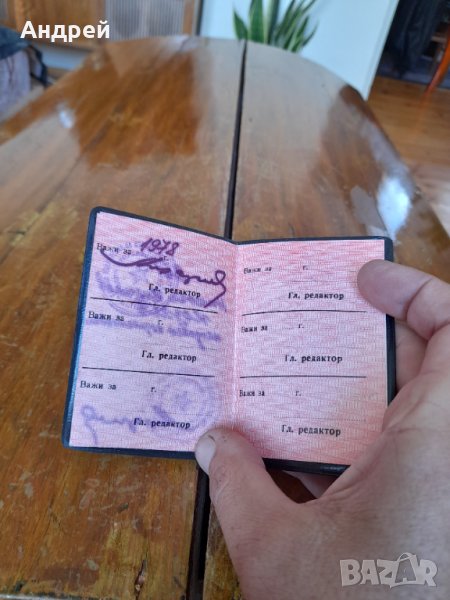 Андрей
Важи за 1978
Гл. редактор
Важи за г.
Гл. редактор
Важи за г.
Гл. редактор
Важи за г.
Гл. редактор
Важи за г.
Гл. редактор
Важи за г.
Гл. редактор
BAZAR